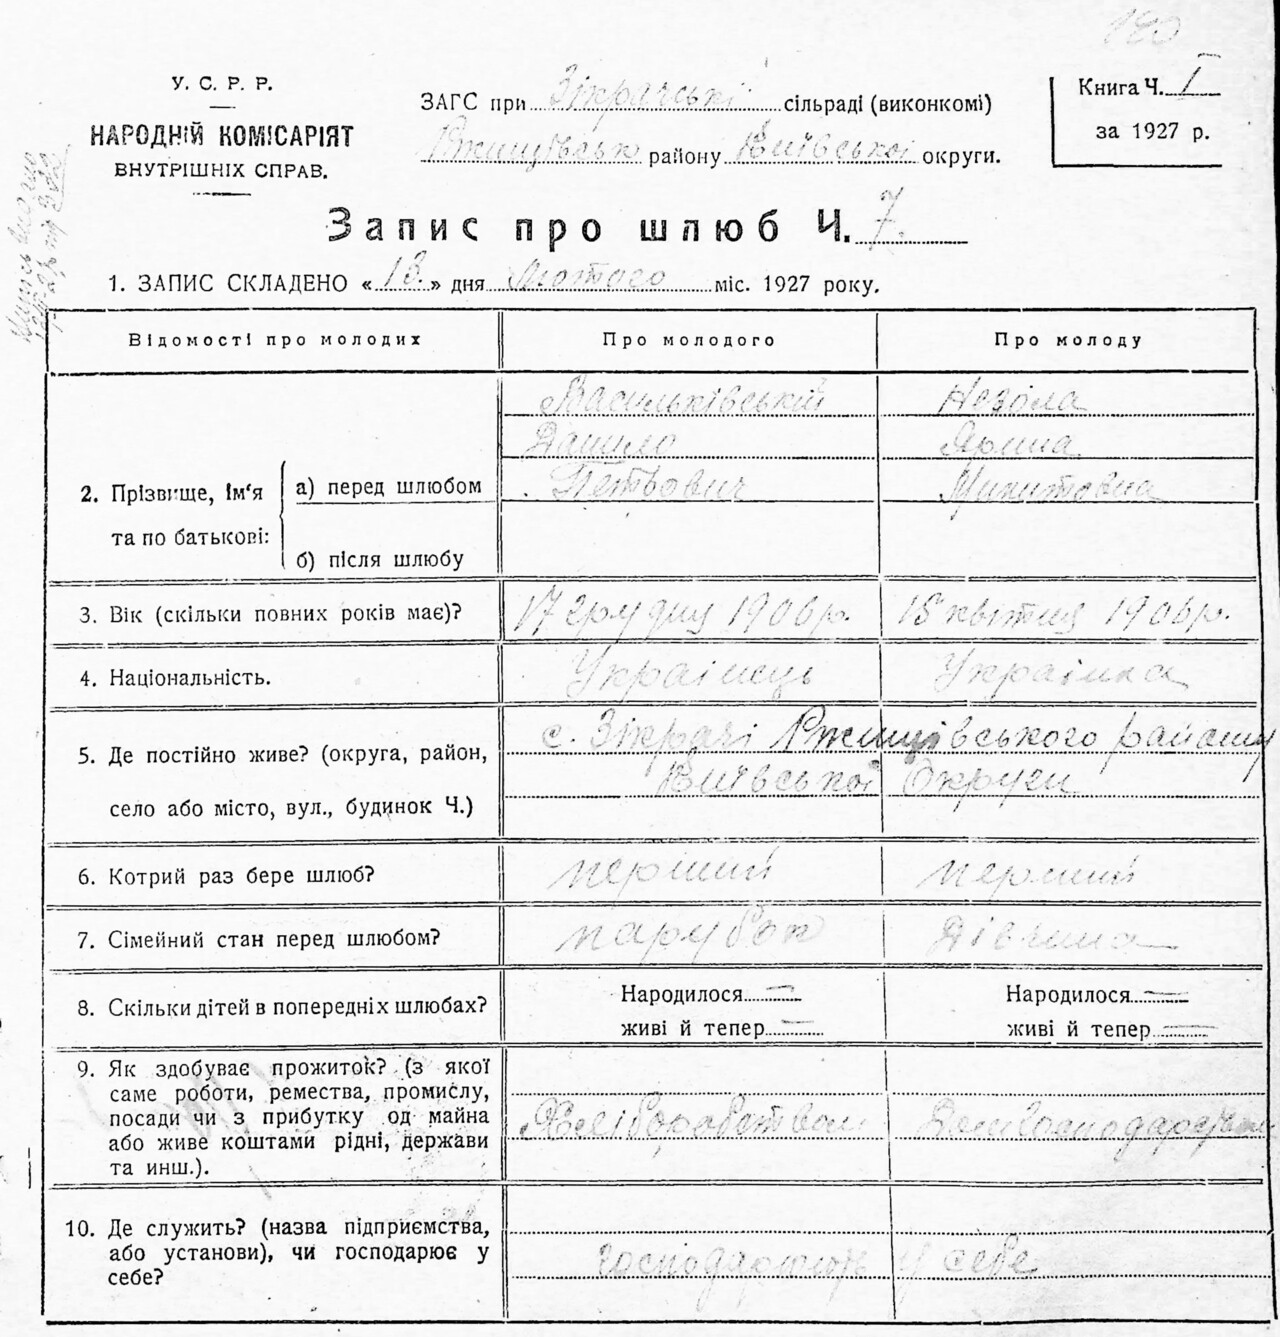 140
У. С. Р. Р.
НАРОДНІЙ КОМІСАРІЯТ
ВНУТРІШНІХ СПРАВ.
ЗАГС при Зікрачські сільраді (виконкомі)
Ржищівськ району Київської округи.
Книга Ч. I
за 1927 р.
Запис про шлюб Ч. 7.
1. ЗАПИС СКЛАДЕНО «18.» дня лютого міс. 1927 року.
Відомості про молодих
Про молодого
Про молоду
2. Прізвище, ім'я та по батькові:
а) перед шлюбом
б) після шлюбу
Васильківський
Данило
Петрович
Ярина
Микитовна
3. Вік (скільки повних років має)?
17 грудня 1906 р.
15 квітня 1906 р.
4. Національність.
Українець
Українка
5. Де постійно живе? (округа, район,
село або місто, вул., будинок Ч.)
с. Зікрачі Ржищівського району
Київської Округи
6. Котрий раз бере шлюб?
перший
перший
7. Сімейний стан перед шлюбом?
парубок
Дівчина
8. Скільки дітей в попередніх шлюбах?
Народилося —
живі й тепер —
Народилося —
живі й тепер —
9. Як здобуває прожиток? (з якої
саме роботи, ремества, промислу,
посади чи з прибутку од майна
або живе коштами рідні, держави
та инш.).
Хліборобством
10. Де служить? (назва підприємства,
або установи), чи господарює у
себе?
господарюють у себе